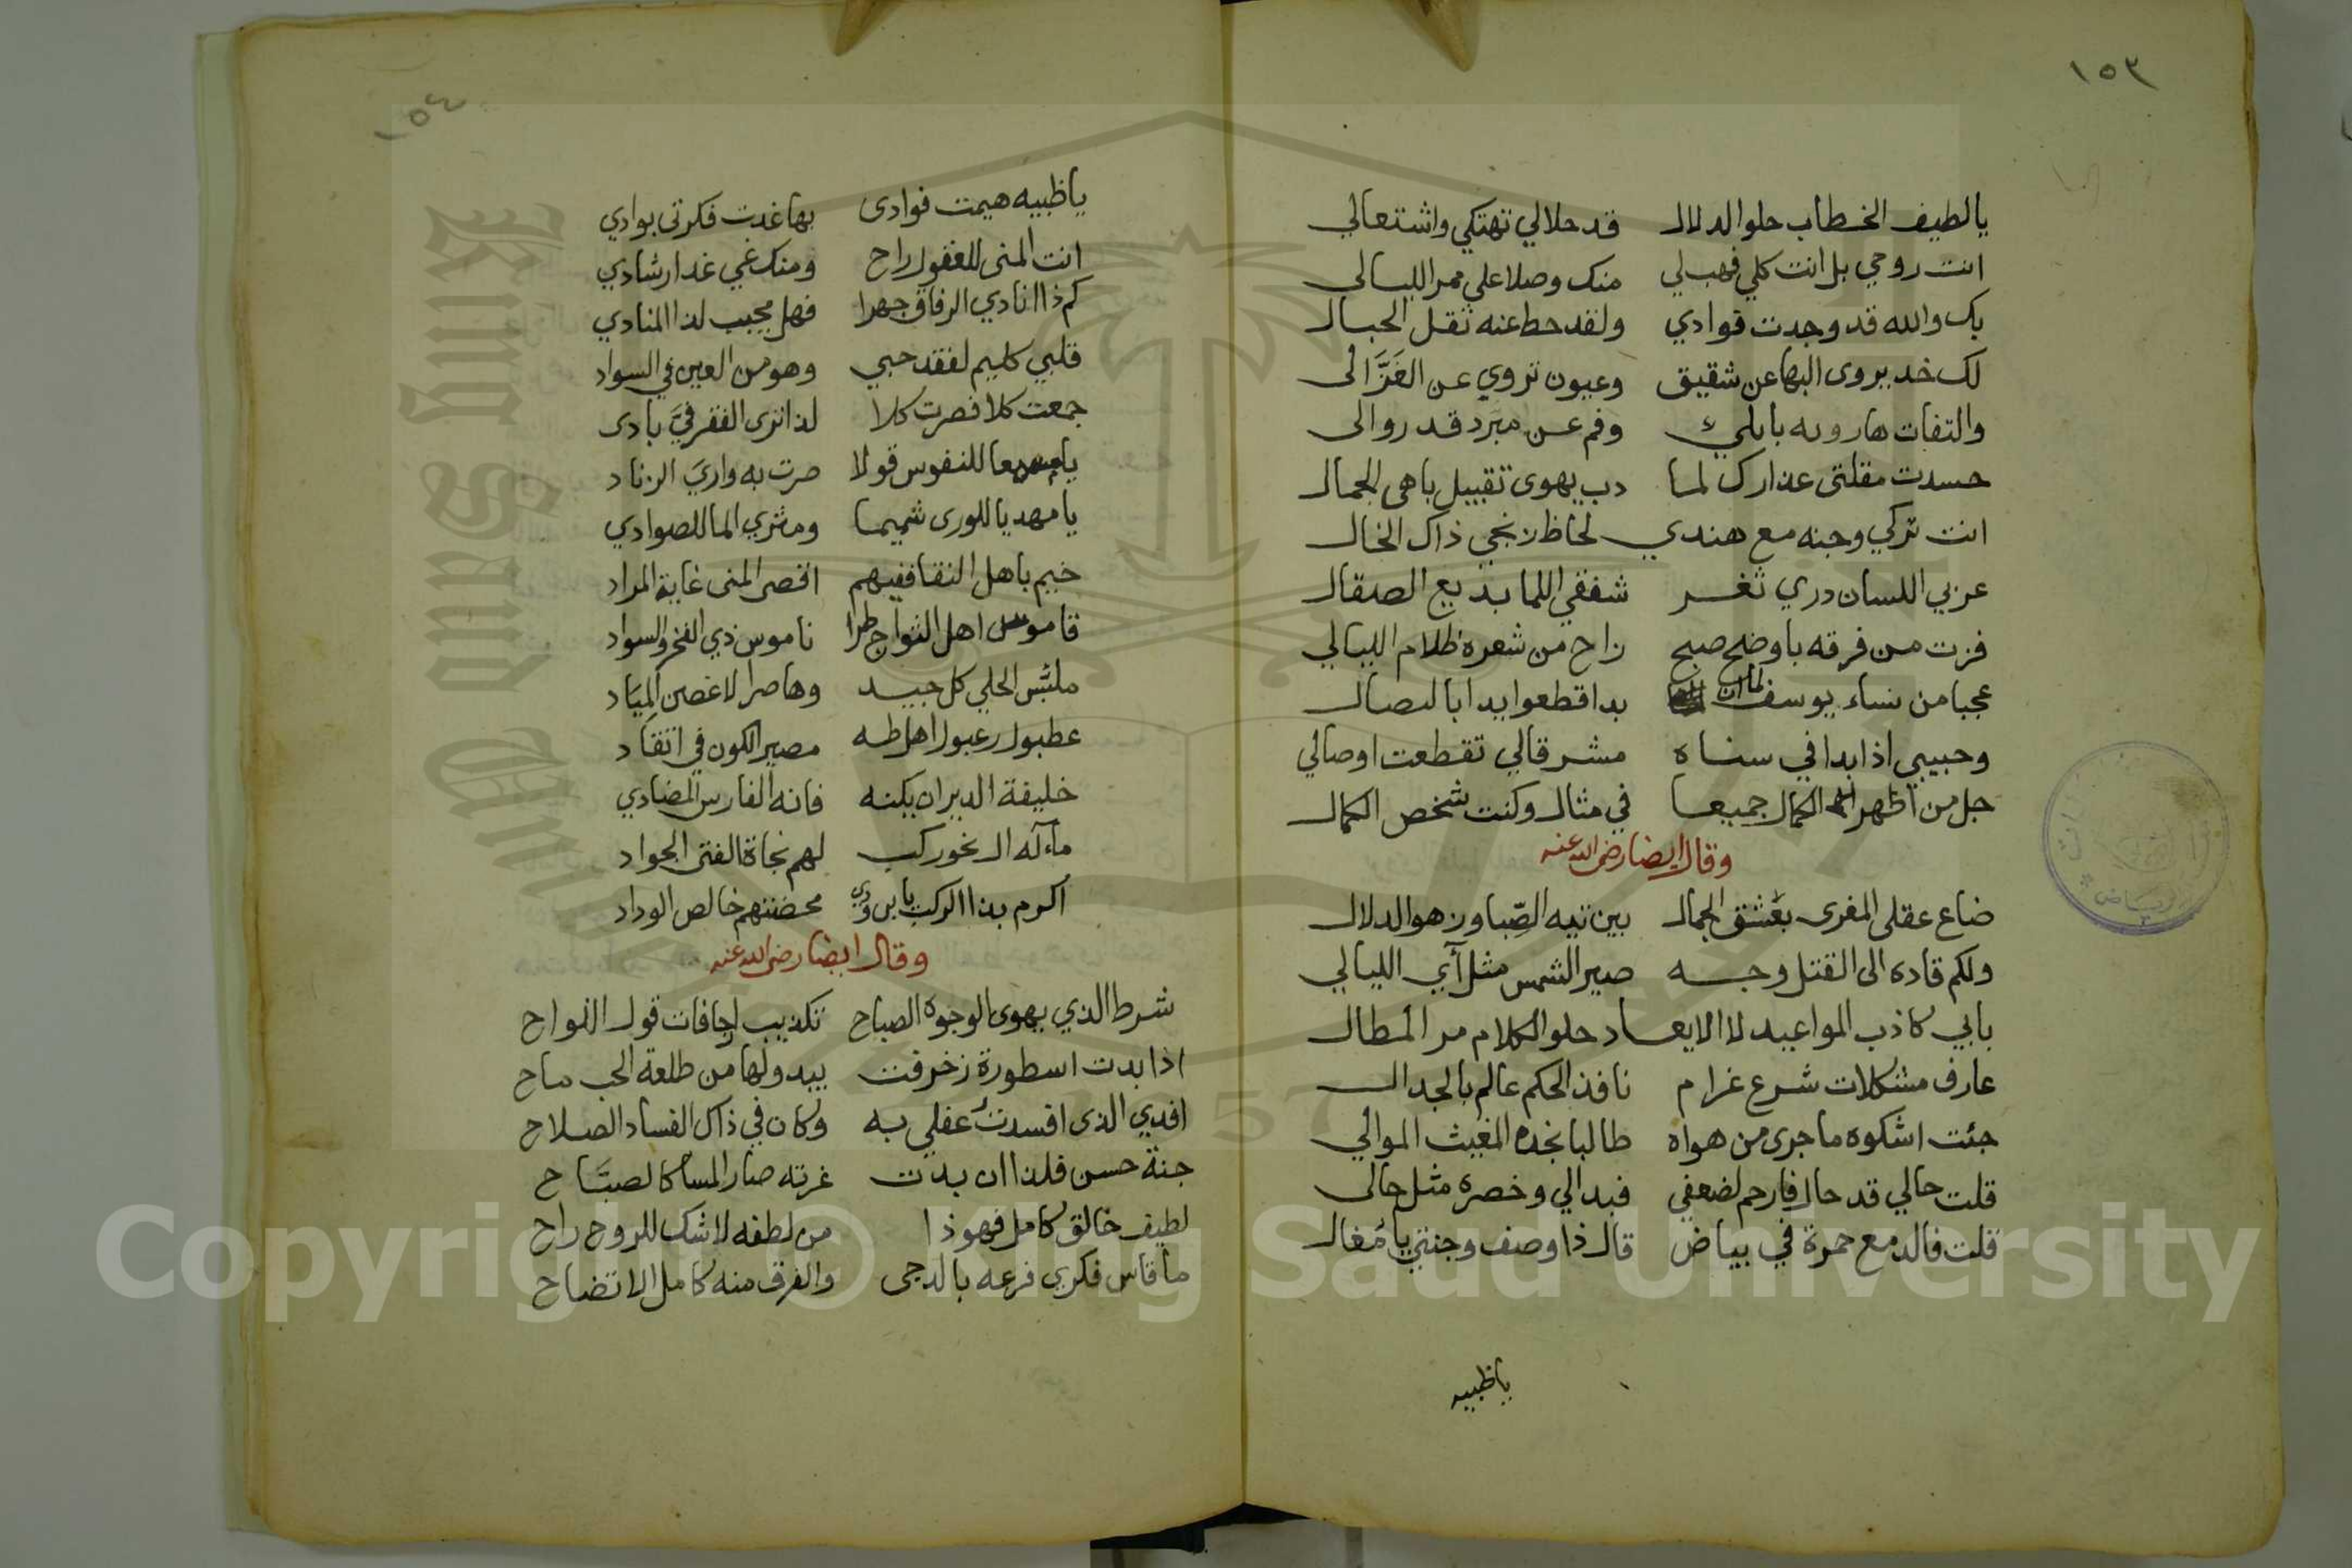 ١٥٣
يا لطيف الخطاب حلو الدلال قد حلالي تهتكي واشتعالي
انت روحي بل انت كلي فهب لي منك وصلا على ممر الليالى
بك والله قد وجدت فوادي ولقد حط عنه ثقل الجبال
لك خد يروى البها عن شقيق وعيون تروي عن الغَزَّالى
والتفات هارونه بابلي وفم عن مبرد قد روالى
حسدت مقلتى عذارك لما دب يهوى تقبيل باهى الجمال
انت تركي وجنه مع هندي لحاظ زنجي ذاك الخال
عربي اللسان دري ثغر شفقي اللما بديع الصقال
فزت من فرقه باوضح صبح زاح من شعره ظلام الليالي
عجبا من نساء يوسف لما ان بدا قطعوا يدا بالنصال
وحبيبي اذا بدا في سناه مشرقالي تقطعت اوصالي
جل من اظهر الكمال جميعا في مثال وكنت شخص الكمال
وقال ايضا رضى الله عنه
ضاع عقلى المغرى بعشق الجمال بين تيه الصِّبا وزهو الدلال
ولكم قاده الى القتل وجه صير الشمس مثل آي الليالي
بابي كاذب المواعيد لا الايعاد حلو الكلام مر المطال
عارف مشكلات شرع غرام نافذ الحكم عالم بالجدال
جئت اشكوه ما جرى من هواه طالبا نجده المغيث الموالي
قلت حالي قد حال فارحم لضعفي فبدالي وخصره مثل حالى
قلت فالدمع حمرة في بياض قال ذا وصف وجنتي يا مُغال
ياظبيه
١٥٤
ياظبيه هيمت فوادى بها غدت فكرتى بوادي
انت المنى للعقول راح ومنك غي غدا رشادي
كم ذا انادي الرفاق جهرا فهل مجيب لذا المنادي
قلبي كليم لفقد حبي وهو من العين في السواد
جمعت كلا فصرت كلا لذا ترى الفقر فيَّ بادى
يا معا للنفوس قولا صرت به واريَ الزناد
يا مهديا للورى شميما ومثري الما للصوادي
خيم باهل النقا ففيهم اقصى المنى غاية المراد
قاموس اهل النواح طرا ناموس ذي الفخر والسواد
ملبِّس الحلي كل جيد وهاصر الاغصن المِيَاد
عطبول رعبول اهل طه مصير الكون في اتقَاد
خليفة الديران يكنه فانه الفارس المضادي
ماله ال نحور كب لهم نجاة الفتى الجواد
اكرم بذا الركب يا محضتهم خالص الوداد
وقال ايضا رضى الله عنه
شرط الذي يهوى الوجوه الصباح تكذيب ارجافات قول النواح
اذا بدت اسطورة زخرفت يبدو لها من طلعة الحب ماح
افدي الذى افسدت عقلي به وكان في ذاك الفساد الصلاح
جنة حسن قلنا ان بدت غرته صار المسا كالصبَاح
لطيف خالق كامل فهو ذا من لطفه لا شك للروح راح
ما قاس فكري فرعه بالدجى والفرق منه كامل الاتضاح
Copyright © King Saud University
King Saud University
1957